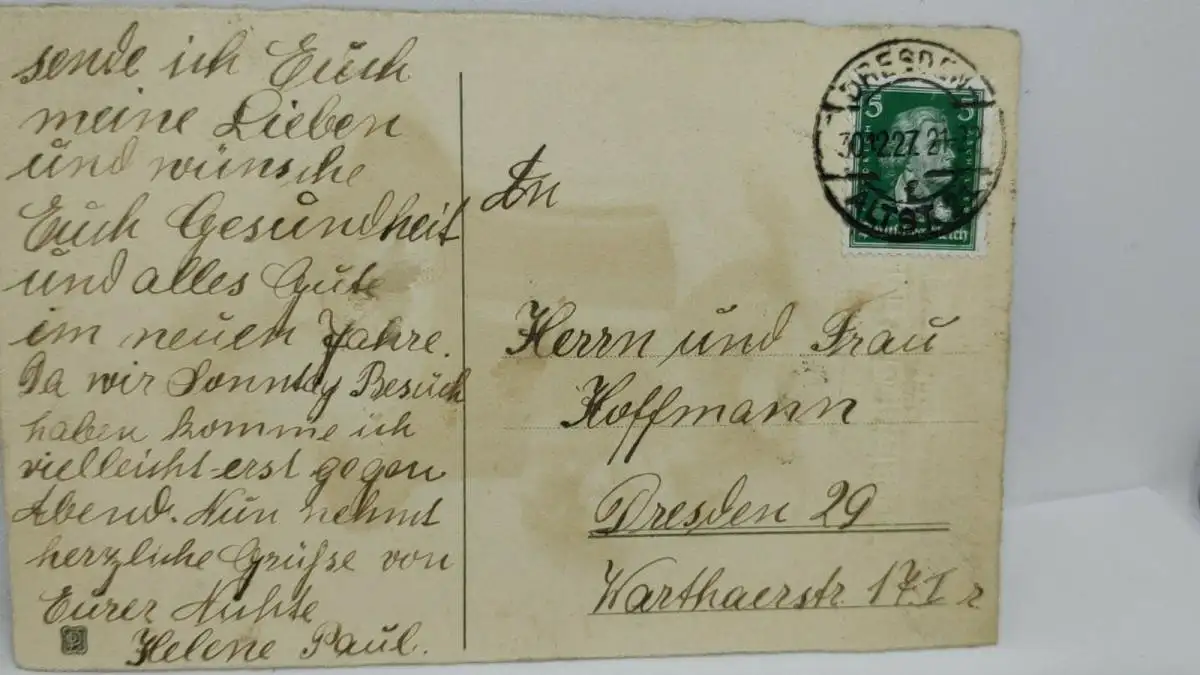 sende ich Euch
meine Lieben
und wünsche
Euch Gesundheit
und alles Gute
im neuen Jahre.
Da wir Sonntag Besuch
haben komme ich
vielleicht erst gegen
Abend. Nun nehmt
herzliche Grüsse von
Eurer
Helene Paul.
DRESDEN
5 5
30.12.27. 21-22
ALTST.
An
Herrn und Frau
Hoffmann
Dresden 29
Warthaerstr 17 I r